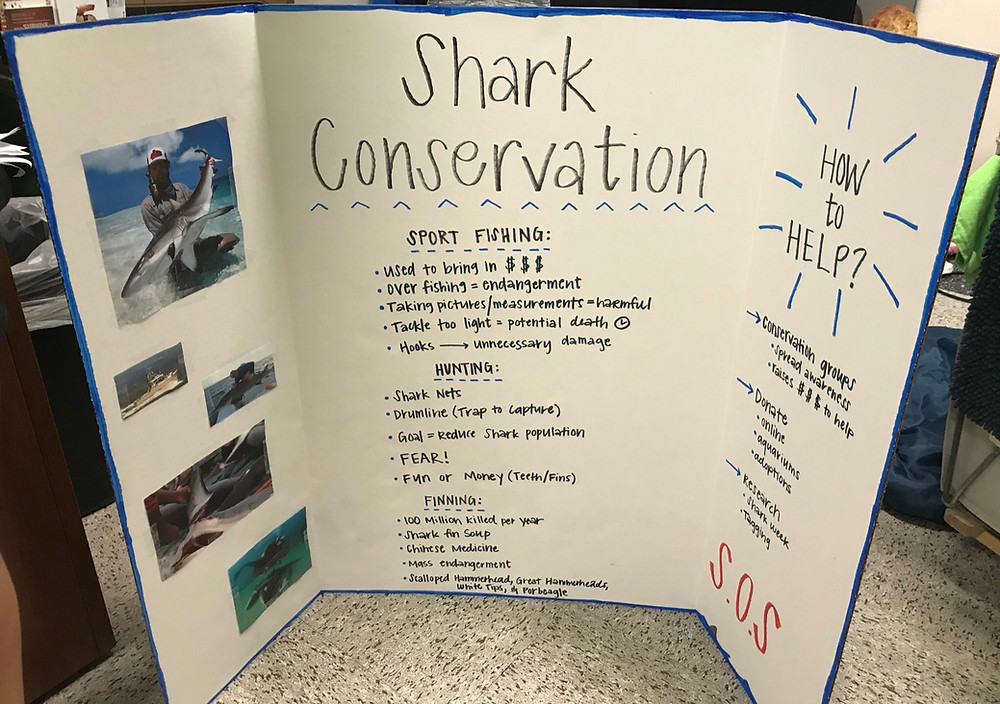 Shark
Conservation
SPORT FISHING:
• used to bring in $ $ $
• over fishing = endangerment
• Taking pictures/measurements = harmful
• Tackle too light = potential death
• Hooks → unnecessary damage
HUNTING:
• Shark Nets
• Drumline (Trap to capture)
• Goal = Reduce Shark population
• FEAR!
• Fun or Money (Teeth/Fins)
FINNING:
• 100 Million killed per year
• Shark fin Soup
• Chinese Medicine
• Mass endangerment
• Scalloped Hammerhead, Great Hammerheads,
White Tips, & Porbeagle
HOW
to
HELP?
→ conservation groups
• spread awareness
• raises $$$ to help
→ Donate
• online
• aquariums
• adoptions
→ research
• shark week
• Tagging
S.O.S